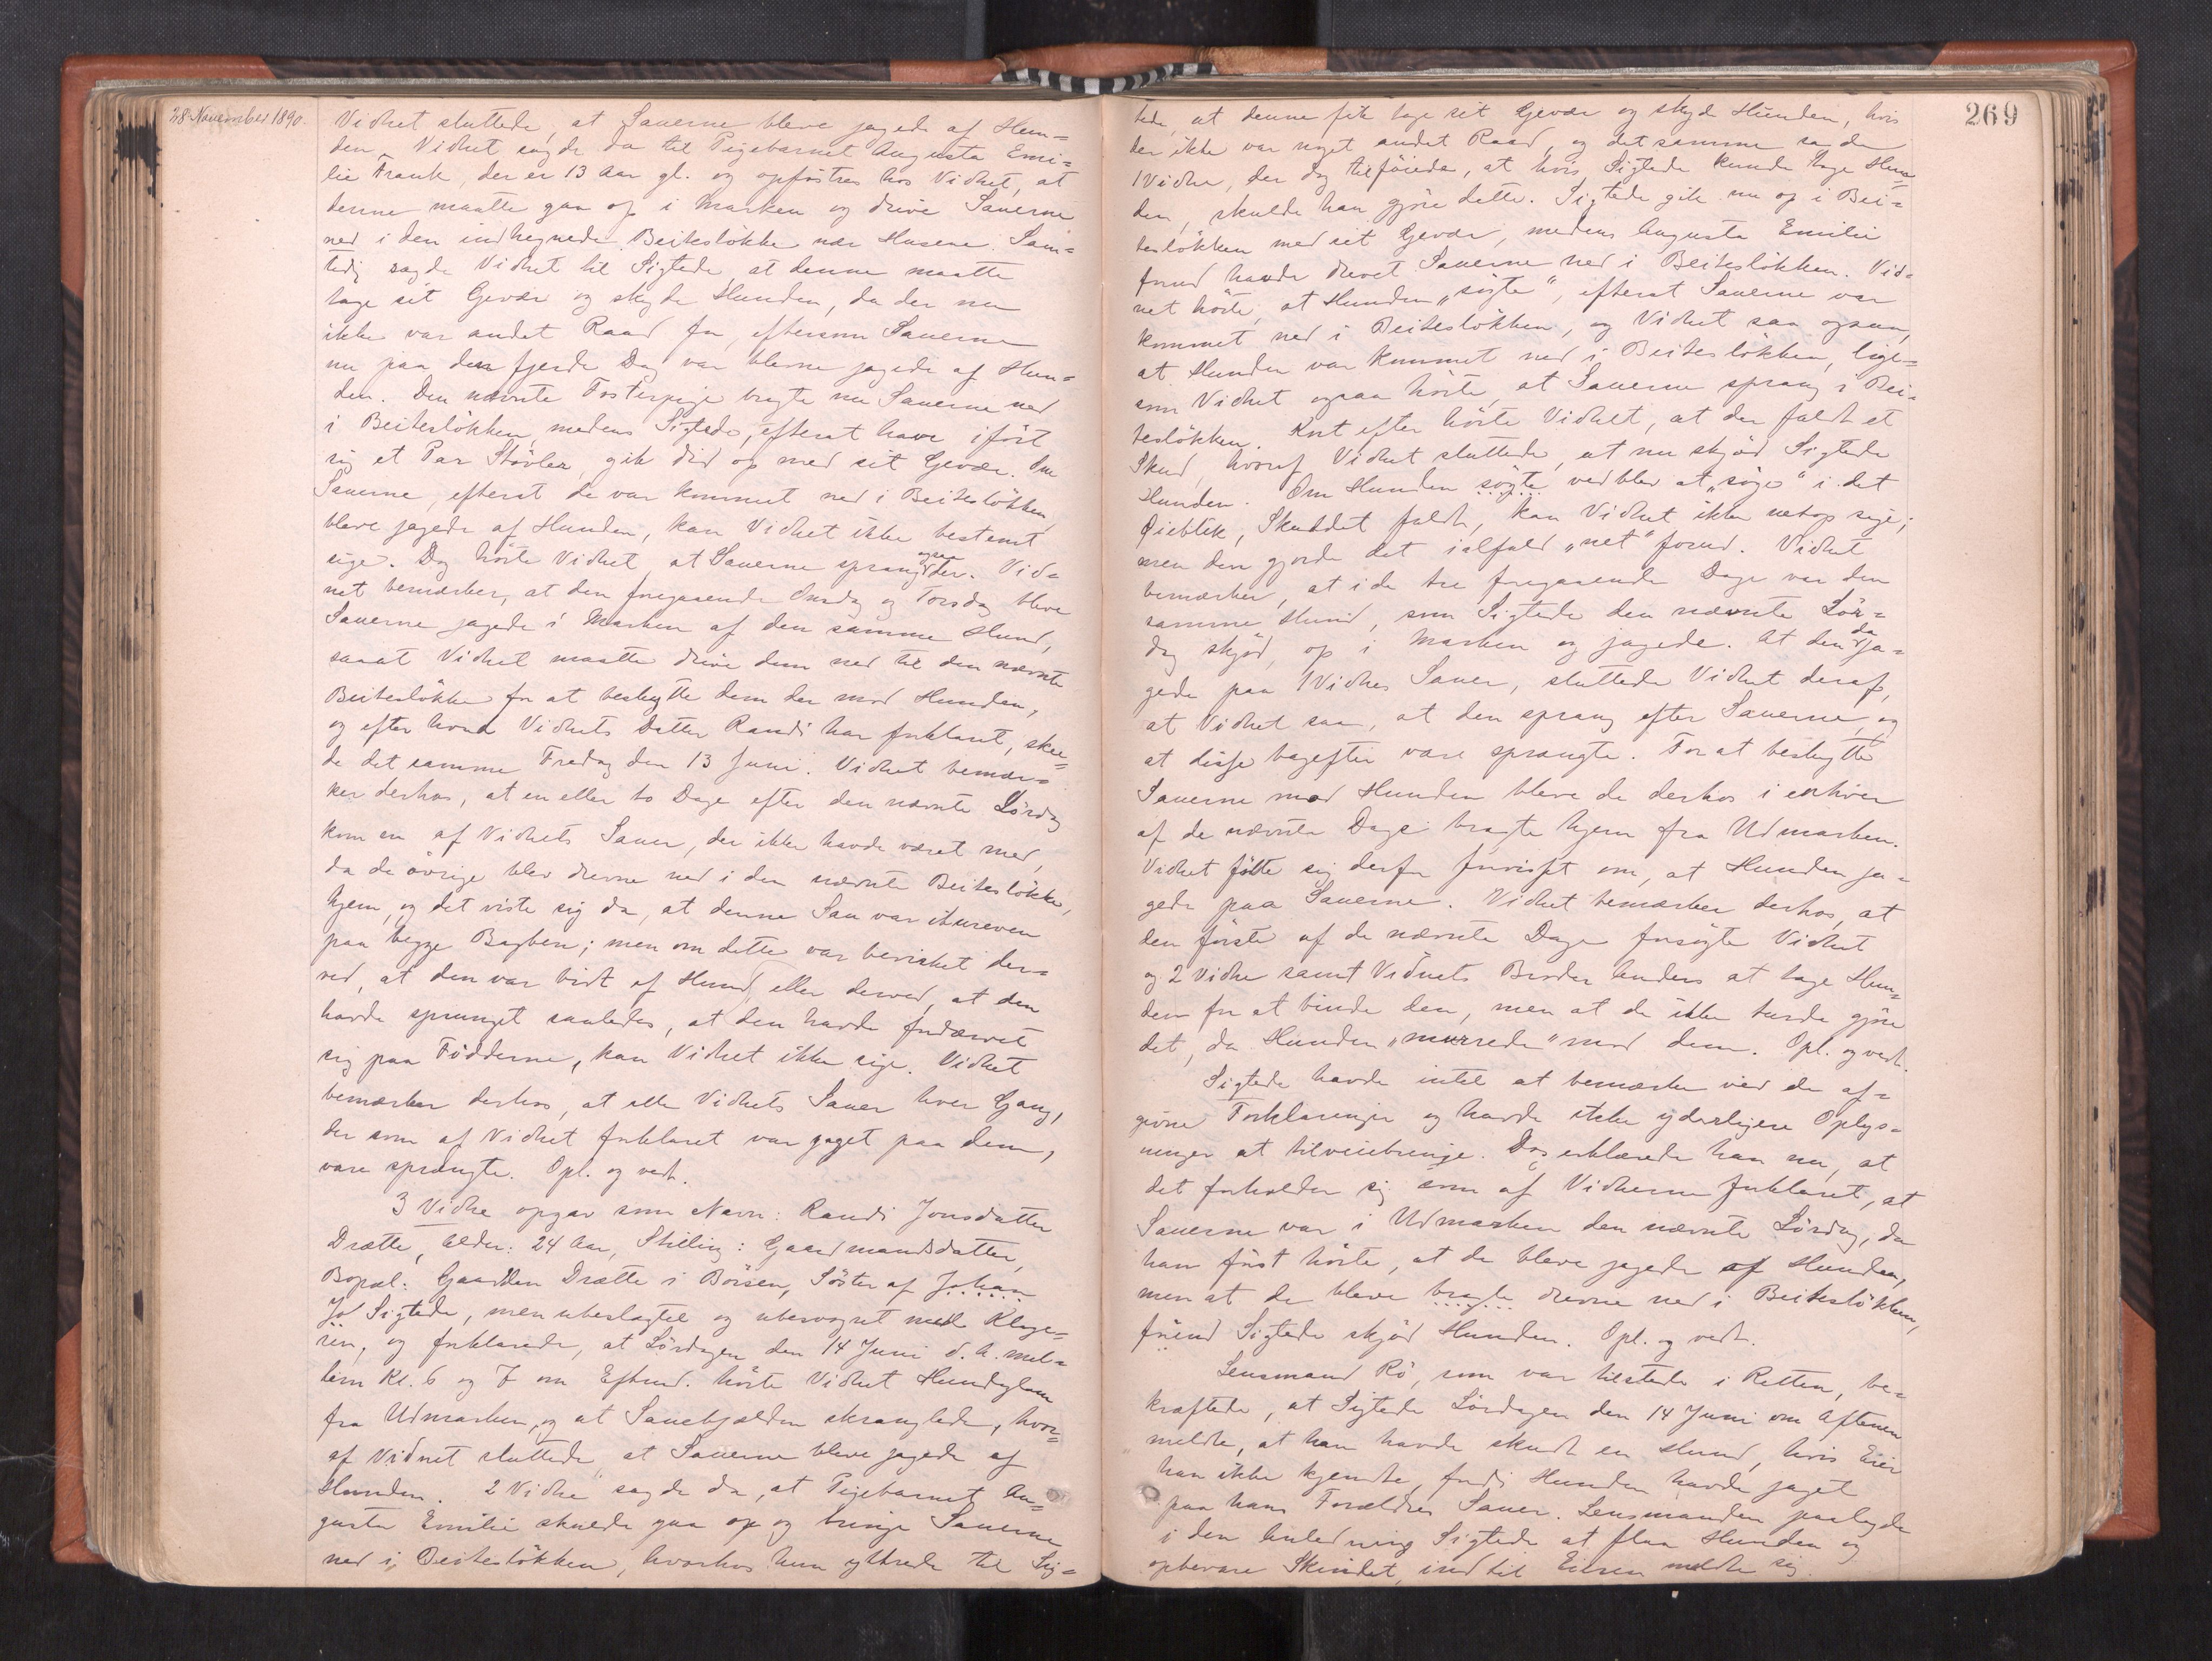 28 November 1890.
Vidnet sluttede, at Sauerne bleve jagede af Hun=
den. Vidnet sagde da til Pigebarnet Augusta Emi=
lie Frank, der er 13 Aar gl. og opfostres hos Vidnet, at
denne maatte gaa op i Marken og drive Sauerne
ned i den indhegnede Beitesløkke nær Husene. Sam=
tidig sagde Vidnet til Sigtede, at denne maatte
tage sit Gevær og skyde Hunden, da der nu
ikke var andet Raad for, eftersom Sauerne
nu paa den fjerde Dag var blevne jagede af Hun=
den. Den nævnte Fosterpige bragte nu Sauerne ned
i Beitesløkken, medens Sigtede, efterat have iført
sig et Par Støvler, gik did op med sit Gevær. Om
Sauerne, efterat de var kommet ned i Beitesløkken,
bleve jagede af Hunden, kan Vidnet ikke bestemt
sige. Dog hørte Vidnet at Sauerne sprang ogsaa der. Vid=
net bemærker, at den foregaaende Onsdag og Torsdag bleve
Sauerne jagede i Marken af den samme Hund,
saaat Vidnet maatte drive dem ned til den nævnte
Beitesløkke for at beskytte dem der mod Hunden,
og efter hvad Vidnets Datter Randi har forklaret, skee=
de det samme Fredag den 13 Juni. Vidnet bemær=
ker derhos, at en eller to Dage efter den nævnte Lørdag
kom en af Vidnets Sauer, der ikke havde været med,
da de øvrige blev drevne ned i den nævnte Beitesløkke,
hjem, og det viste sig da, at denne Sau var itureven
paa begge Bagben; men om dette var bevirket der=
ved, at den var bidt af Hund, eller derved, at den
havde sprunget saaledes, at den havde fordærvet
sig paa Fødderne, kan Vidnet ikke sige. Vidnet
bemærker derhos, at alle Vidnets Sauer hver Gang,
der som af Vidnet forklaret var jaget paa dem,
vare sprængte. Opl. og vedt.
3 Vidne opgav som Navn: Randi Jonsdatter
Drætte, Alder: 24 Aar, Stilling: Gaardmandsdatter,
Bopæl: Gaarden Drætte i Børsen, Søster af Johan
Jo Sigtede, men ubeslægtet og ubesvogret med Klage=
ren, og forklarede, at Lørdagen den 14 Juni d. A. mel=
lem Kl. 6 og 7 om Eftmd. hørte Vidnet Hundeglam
fra Udmarken, og at Sauebjælden skranglede, hvor=
af Vidnet sluttede, at Sauerne bleve jagede af
Hunden. 2 Vidne sagde da, at Pigebarnet Au=
gusta Emilie skulde gaa op og bringe Sauerne
ned i Beitesløkken, hvorhos hun yttrede til Sig=
269
tede, at denne fik tage sit Gevær og skyde Hunden, hvis
der ikke var noget andet Raad, og det samme sagde
1 Vidne, der dog tilføiede, at hvis Sigtede kunde tage Hun=
den, skulde han gjøre dette. Sigtede gik nu op i Bei=
tesløkken med sit Gevær, medens Augusta Emilie
forud havde drevet Sauerne ned i Beitesløkken. Vid=
net hørte, at Hunden "søgte", efterat Sauerne var
kommet ned i Beitesløkken, og Vidnet saa ogsaa,
at Hunden var kommet ned i Beitesløkken, lige=
som Vidnet ogsaa hørte, at Sauerne sprang i Bei=
tesløkken. Kort efter hørte Vidnet, at der faldt et
Skud, hvoraf Vidnet sluttede, at nu skjød Sigtede
Hunden. Om Hunden søgte vedblev at "søge" i det
Øieblik, Skuddet faldt, kan Vidnet ikke netop sige;
men den gjorde det ialfald "net" forud. Vidnet
bemærker, at i de tre foregaaende Dage var den
samme Hund, som Sigtede den nævnte Lør=
dag skjød, op i Marken og jagede. At den da ja=
gede paa 1 Vidnes Sauer, sluttede Vidnet deraf,
at Vidnet saa, at den sprang efter Sauerne, og
at disse bagefter vare sprængte. For at beskytte
Sauerne mod Hunden bleve de derhos i enhver
af de nævnte Dage bragte hjem fra Udmarken.
Vidnet følte sig derfor forvisset om, at Hunden ja=
gede paa Sauerne. Vidnet bemærker derhos, at
den første af de nævnte Dage forsøgte Vidnet
og 2 Vidne samt Vidnets Broder Anders at tage Hun=
den for at binde den, men at de ikke turde gjøre
det, da Hunden "murrede" mod dem. Opl. og vedt.
Sigtede havde intet at bemærke ved de af=
givne Forklaringer og havde ikke yderligere Oplys=
ninger at tilveiebringe. Dog erklærede han nu, at
det forholder sig som af Vidnerne forklaret, at
Sauerne var i Udmarken den nævnte Lørdag, da
han først hørte, at de bleve jagede af Hunden,
men at de bleve bragte drevne ned i Beitesløkken,
førend Sigtede skjød Hunden. Opl. og vedt.
Lensmand Rö, som var tilstede i Retten, be=
kræftede, at Sigtede Lørdagen den 14 Juni om Aftenen
meldte, at han havde skudt en Hund, hvis Eier
han ikke kjendte, fordi Hunden havde jaget
paa hans Forældres Sauer. Lensmanden paalagde
i den Anledning Sigtede at flaa Hunden og
opbevare Skindet, indtil Eieren meldte sig.